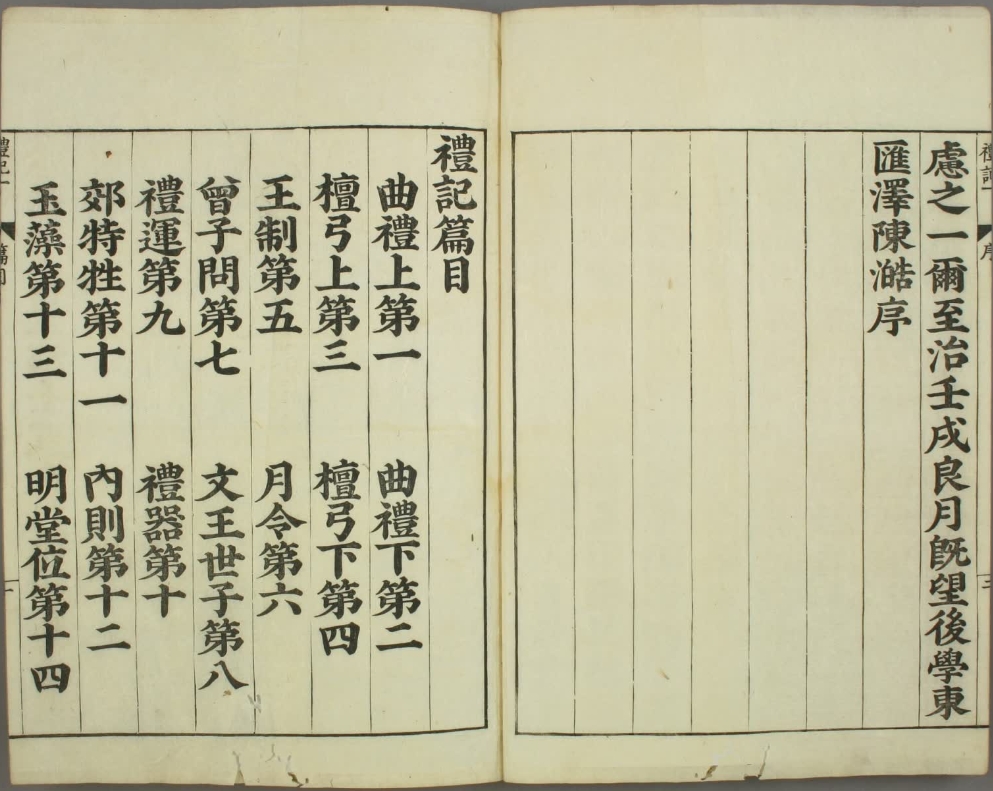 禮記一
序
三
慮之一爾至治壬戌良月旣望後學東
匯澤陳澔序
禮記篇目
曲禮上第一
曲禮下第二
檀弓上第三
檀弓下第四
王制第五
月令第六
曾子問第七
文王世子第八
禮運第九
禮器第十
郊特牲第十一
內則第十二
玉藻第十三
明堂位第十四
禮記一
篇目
一